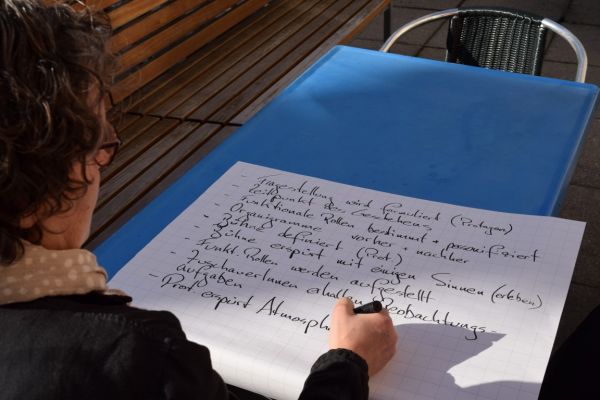 - Fragestellung wird formuliert (Protagon)
Zeitpunkt des Geschehens
- Funktionale Rollen bestimmt + personifiziert
- Organigramme vorher + nachher
- Bühne definiert (Prot.)
- Bühne erspürt mit einigen Sinnen (erleben)
- Funkt. Rollen werden aufgestellt
- ZuschauerInnen erhalten Beobachtungs-
Aufgaben
- Prot. erspürt Atmosph